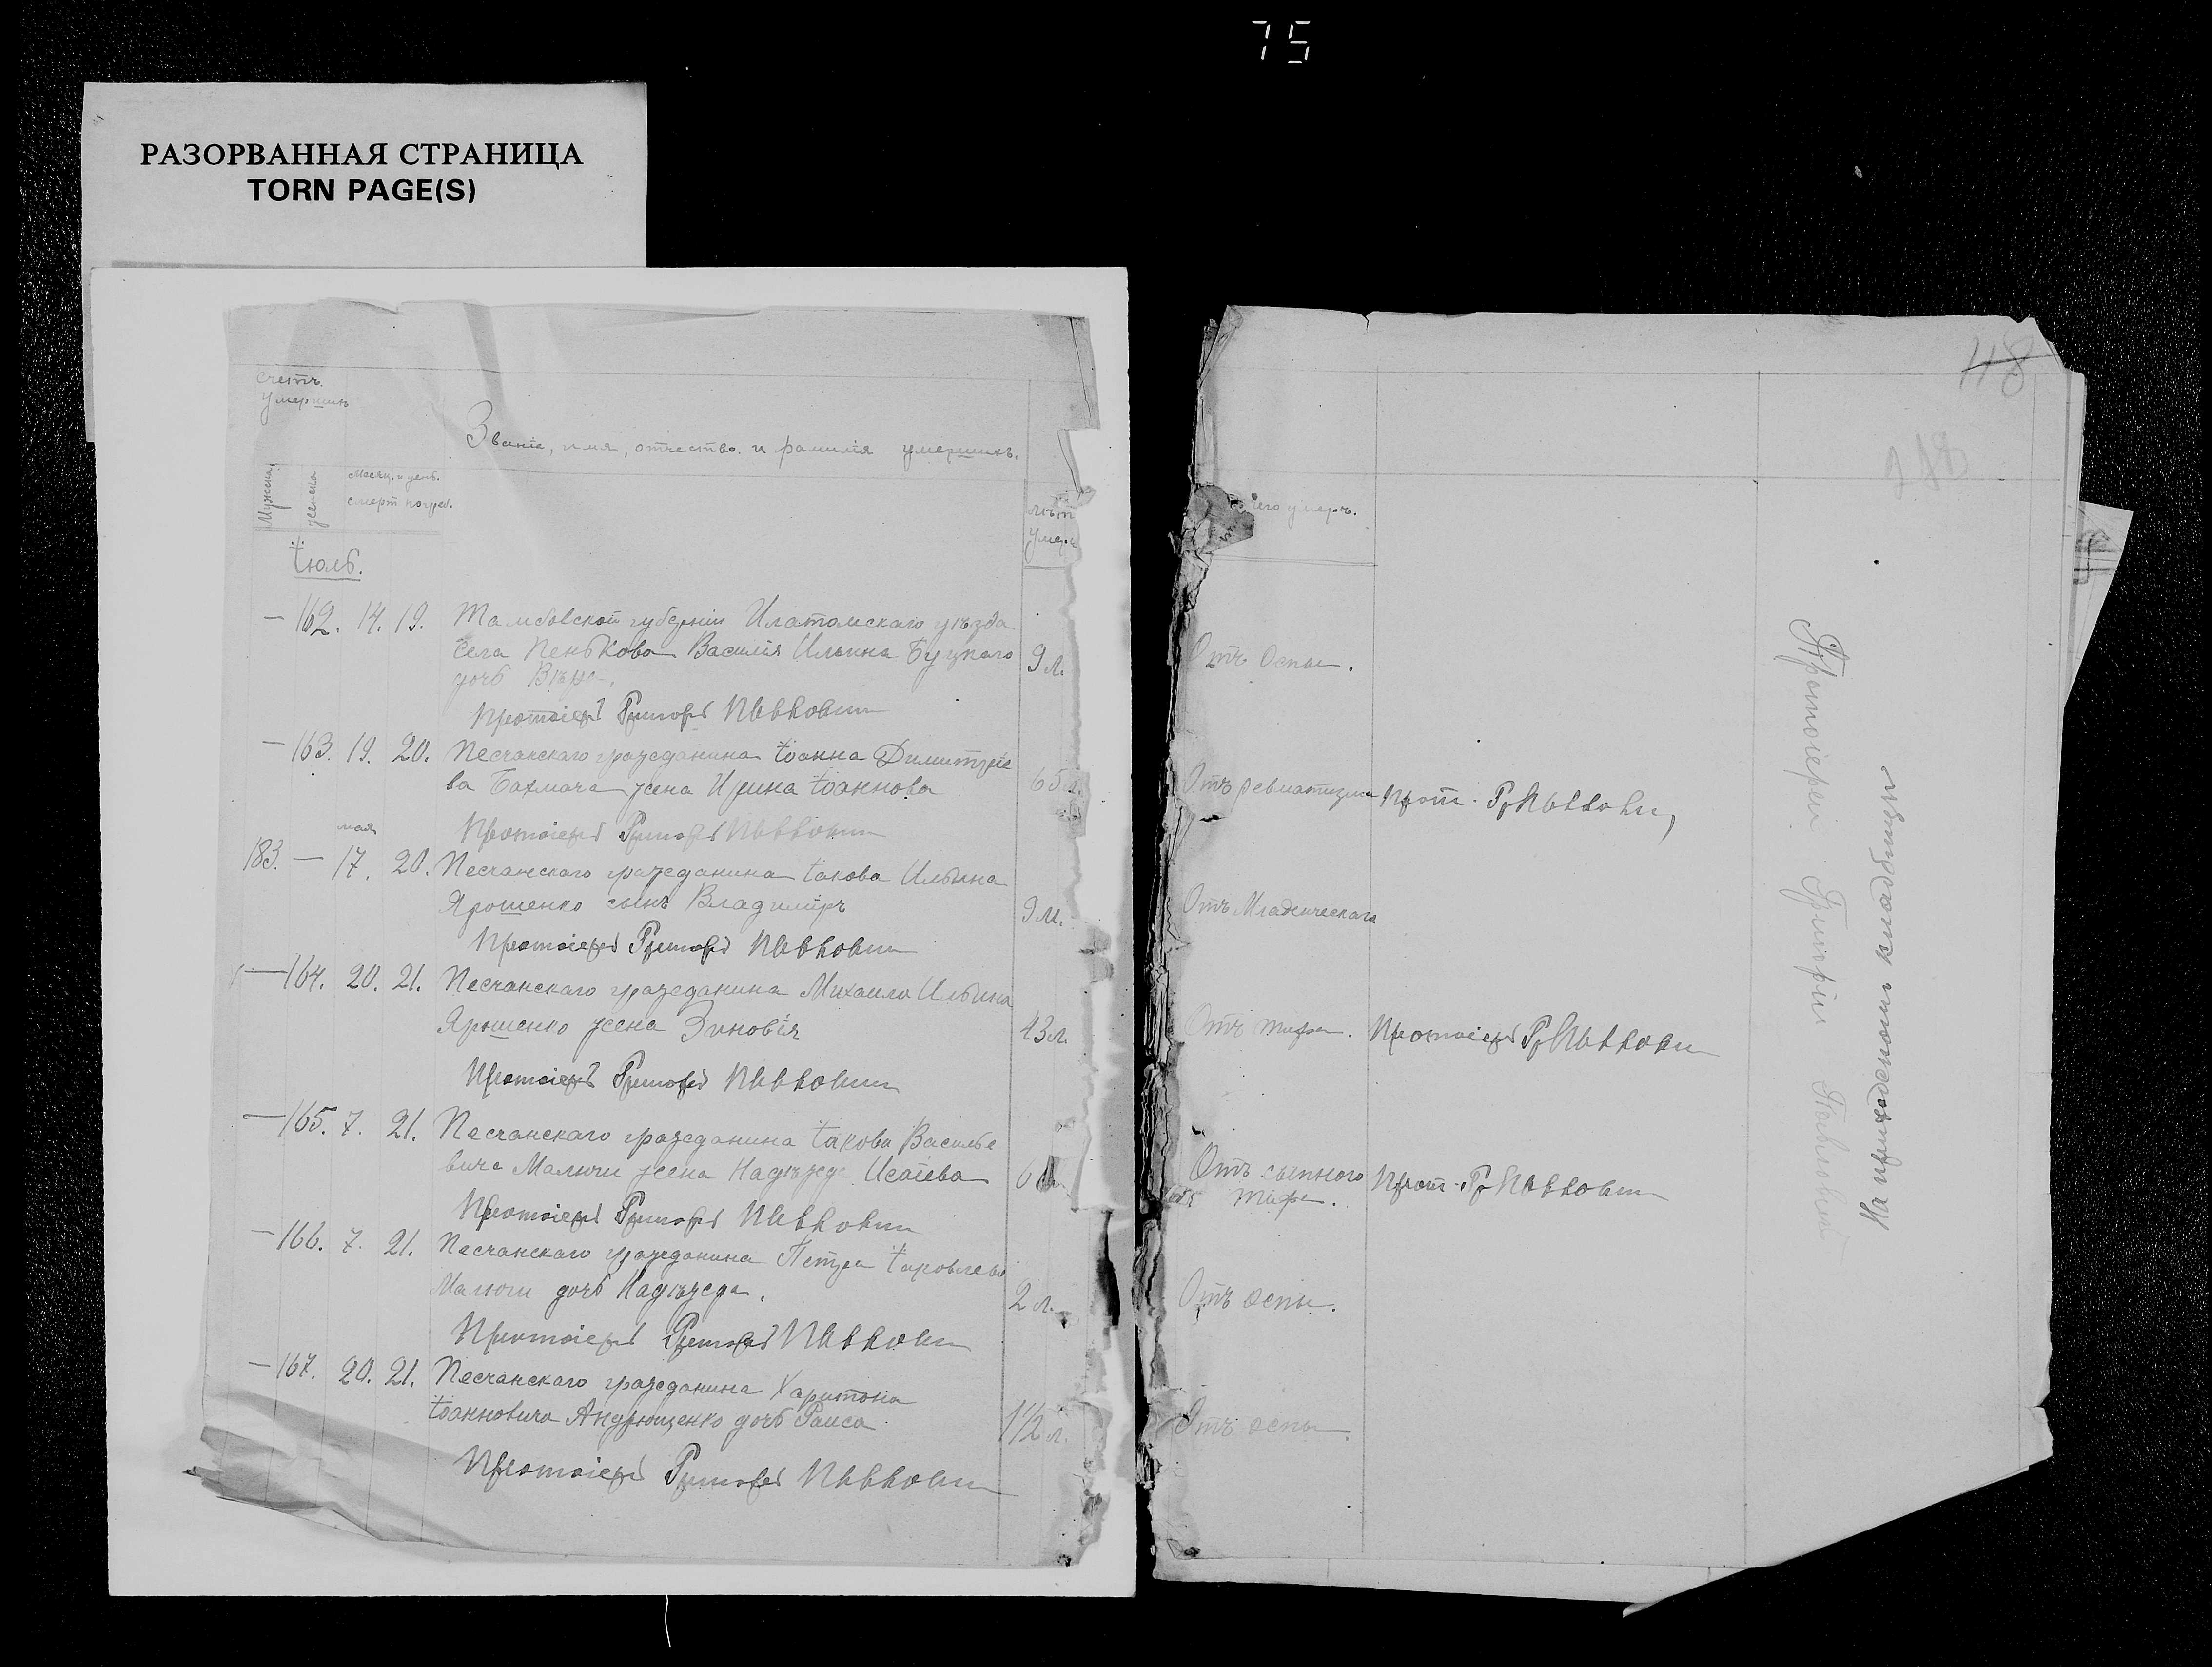 75
РАЗОРВАННАЯ СТРАНИЦА
TORN PAGE(S)
Счетъ
умершихъ
Званіе, имя, отчество и фамилія умершихъ.
Мужска
женска
Месяц. и день.
смерт погреб.
лѣт
умер.
Іюль.
— 162. 14. 19. Тамбовской губерніи Илатомскаго уѣзда
села Пенькова Василія Ильина Буцкаго 9 л.
дочь Вѣра.
Протоіерей Григорій Павлович
— 163. 19. 20. Песчанскаго гражданина Іоанна Димитріе
ва Бахмача жена Ирина Іоаннова 65 л.
Протоіерей Григорій Павлович
мая
183. — 17. 20. Песчанскаго гражданина Іакова Ильина
Ярошенко сынъ Владиміръ 9 м.
Протоіерей Григорій Павлович
— 164. 20. 21. Песчанскаго гражданина Михаила Ильина
Ярошенко жена Зиновія 43 л.
Протоіерей Григорій Павлович
— 165. 7. 21. Песчанскаго гражданина Іакова Василье
вича Малюги жена Надежда Исаіева
Протоіерей Григорій Павлович
— 166. 7. 21. Песчанскаго гражданина Петра Іаковлева
Малюги дочь Надежда. 2 л.
Протоіерей Григорій Павлович
— 167. 20. 21. Песчанскаго гражданина Харитона
Іоанновича Андрющенко дочь Раиса 1 1/2 л.
Протоіерей Григорій Павлович
48
чего умеръ.
Отъ Оспы.
Отъ ревматизма Прот. Гр Павлович
Отъ Младенческаго
Отъ тифа. Протоіерей Гр Павлович
Отъ сыпного Прот. Гр Павлович
тифа.
Отъ оспы.
Отъ оспы.
Протоіереи Григорій Павлович
На приходскомъ кладбищѣ